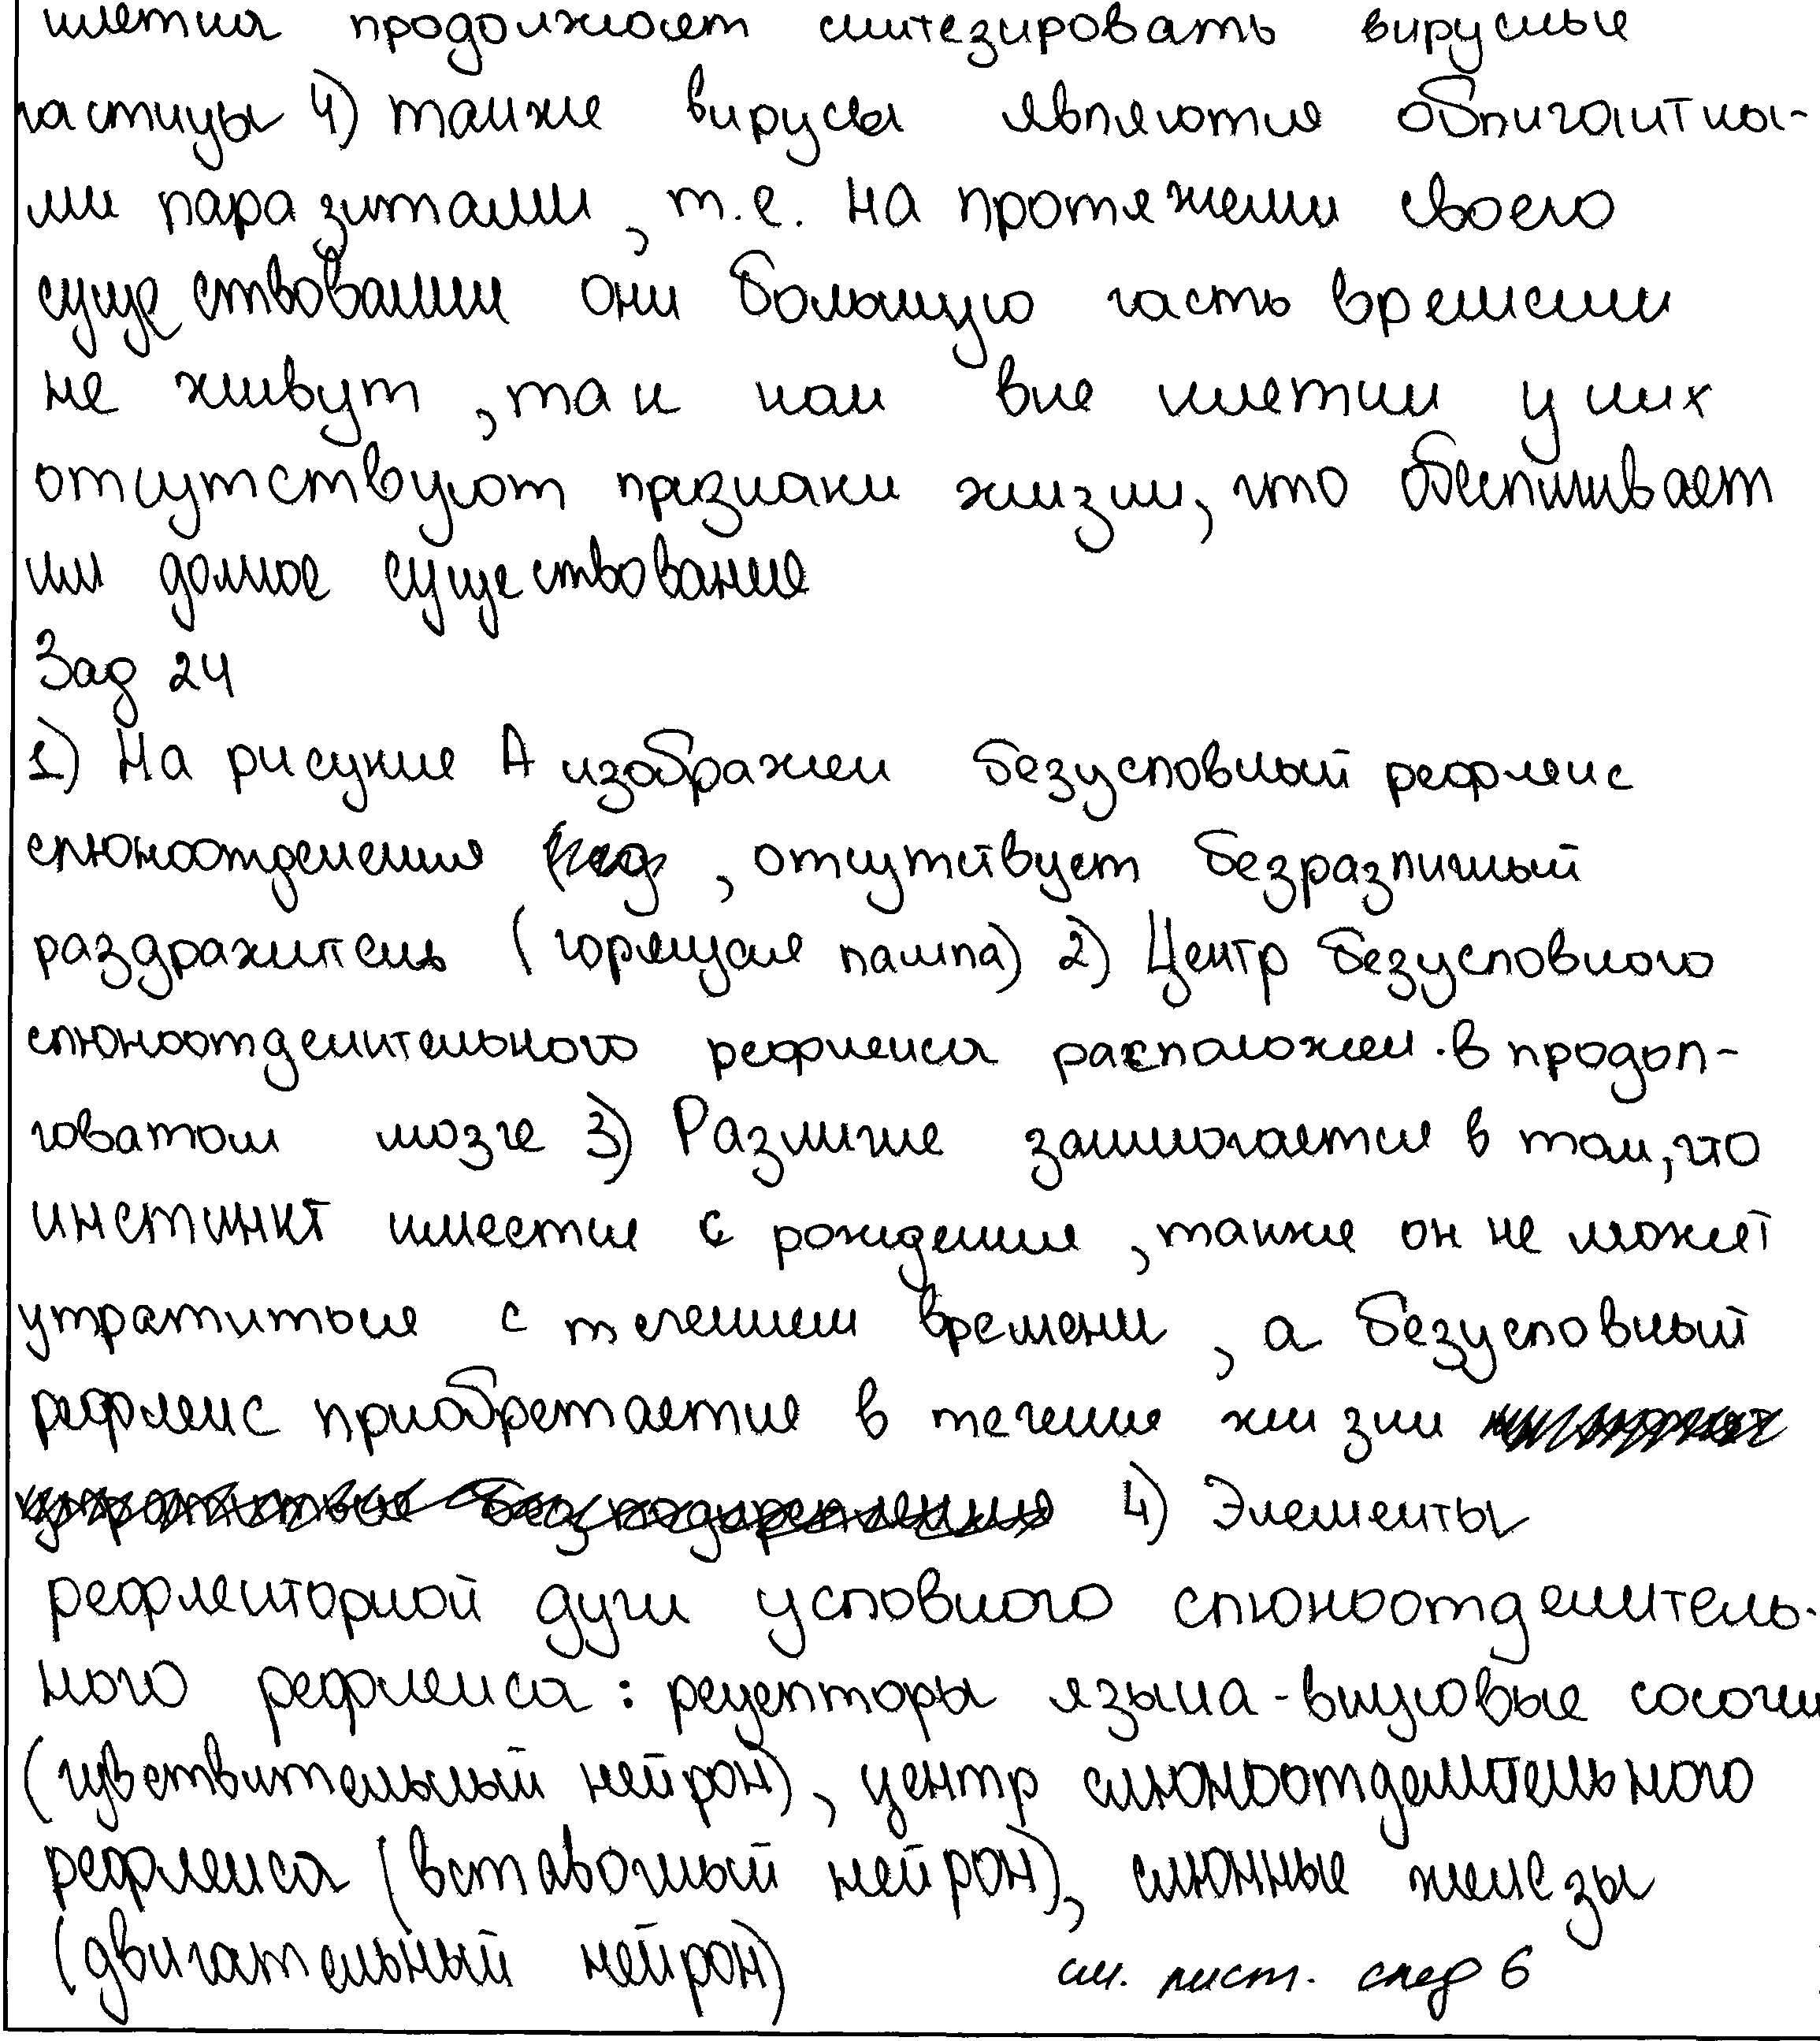 клетка продолжает синтезировать вирусные
частицы 4) также вирусы являются облигатны-
ми паразитами, т.е. на протяжении своего
существования они большую часть времени
не живут, так как вне клетки у них
отсутствуют признаки жизни, что обеспечивает
им долгое существование
Зад 24
1) На рисунке А изображен безусловный рефлекс
слюноотделения , отсутствует безразличный
раздражитель (горящая лампа) 2) Центр безусловного
слюноотделительного рефлекса расположен в продол-
говатом мозге 3) Различие заключается в том, что
инстинкт имеется с рождения, также он не может
утратиться с течением времени, а безусловный
рефлекс приобретается в течение жизни
4) Элементы
рефлекторной дуги условного слюноотделитель-
ного рефлекса: рецепторы языка - вкусовые сосочки
(чувствительный нейрон), центр слюноотделительного
рефлекса (вставочный нейрон), слюнные железы
(двигательный нейрон) см. лист. след 6